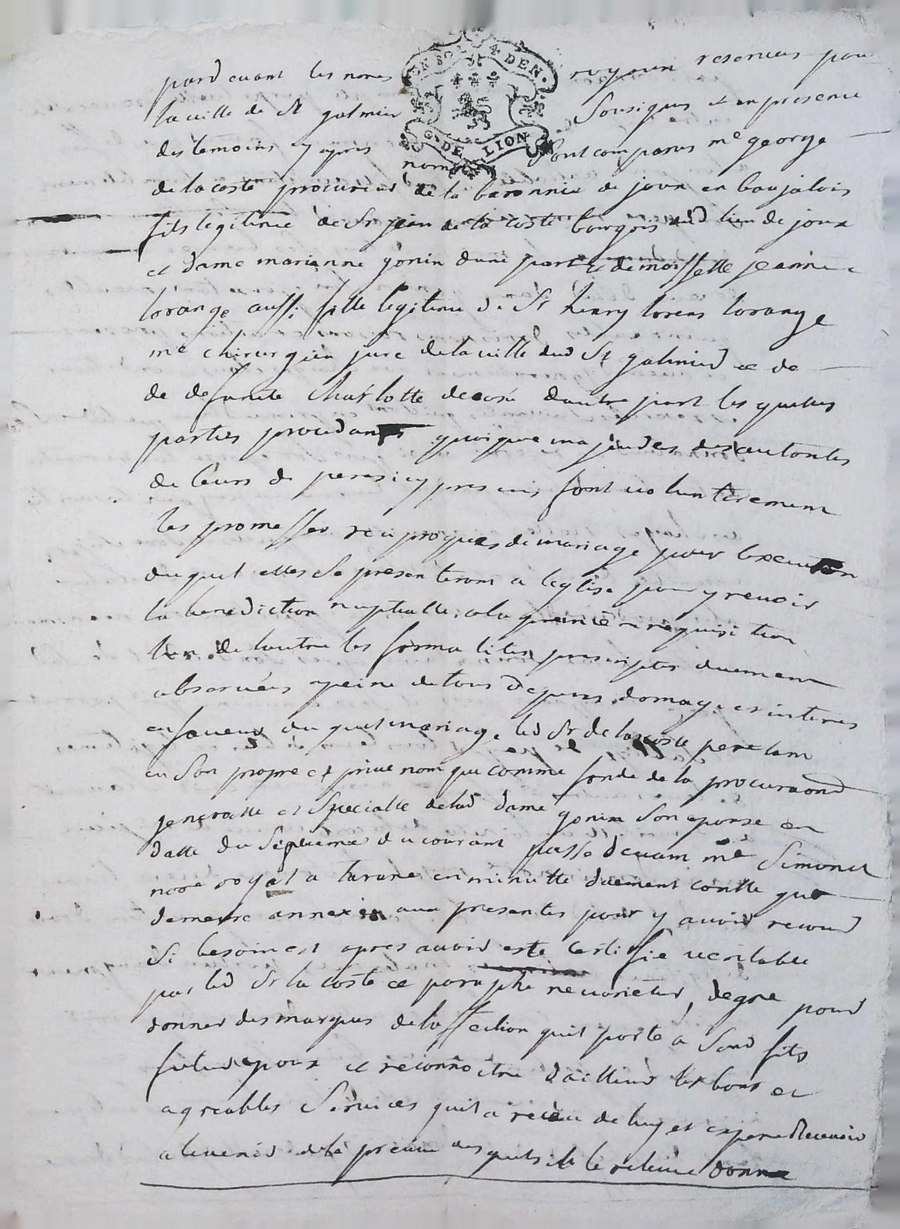 UN SOL 4 DEN.
G. DE LION
pard euant les nores royaux reserues pour
la ville de St galmier Sousignes et en presence
des temoins y apres nommes Sont comparus me george
de lacoste procureur de la baronnie de joux en baujolois
fils legitime de Sr jean de la Coste bourgois dud lieu de joux
et dame marianne gonin dune part et demoisselle jeanne
lorange aussi fille legitime de Sr henry lorange
me chirurgien juré de la ville dud St galmier et de
de defunte Charlotte dautre part les quelles
parties procedantes quoique majeures des autorites
de leurs dt peres icy presents font uoluntairement
les promesses reciproques de mariage pour lexecution
duquel elles se presenteront a leglise pour y receuoir
la benediction nuptialle a la premiere requisition
lun de lautre les formalites prescriptes duement
obseruées a peine de tous depens domages interets
en faueur du quel mariage led Sr de lacoste pere tant
en Son propre et priué nom que comme fondé de la procuraond
generalle et Specialle delad dame gonin Son epouse en
datte du Septieme du courant passé deuant me Simonet
nore royal a tarare en minutte duement contle qui
demeure annexée aux presentes pour y auoir recours
Si besoin est apres auoir esté certifié ueritable
par led Sr la Coste et paraphé ne uarietur, de gré pour
donner des marques de laffection quil porte a Sond fils
futur epoux et reconnoitre dailleurs les bons et
agreables Seruices quil a receu de luy et espere Receuoir
a lauenir de la preuue des quels il le releue donne